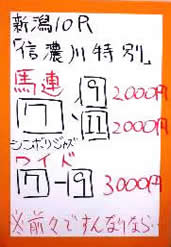 新潟10R
「信濃川特別」
馬連 9 2000円
7 、 11 2000円
シンボリジャズ
ワイド
7 - 9 3000円
※前々ですんなりなら…